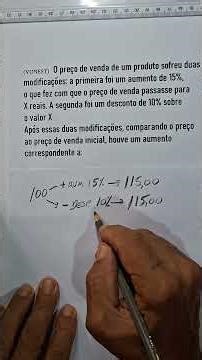 (VUNESP) O preço de venda de um produto sofreu duas
modificações: a primeira foi um aumento de 15%,
o que fez com que o preço de venda passasse para
X reais. A segunda foi um desconto de 10% sobre
o valor X
Após essas duas modificações, comparando o preço
ao preço de venda inicial, houve um aumento
correspondente a:
100 + AUM 15% → 115,00
- DESC 10% → 115,00